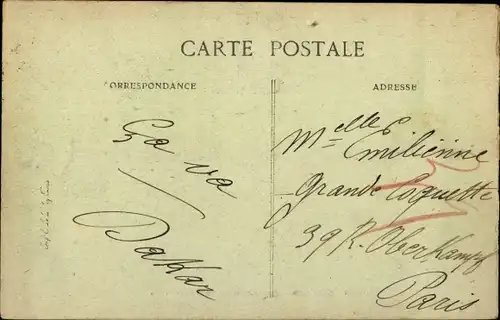 CARTE POSTALE
CORRESPONDANCE
ADRESSE
Ça va
Dakar
Melle Emilienne
Grande Coquette
39 R. Oberkampf
Paris